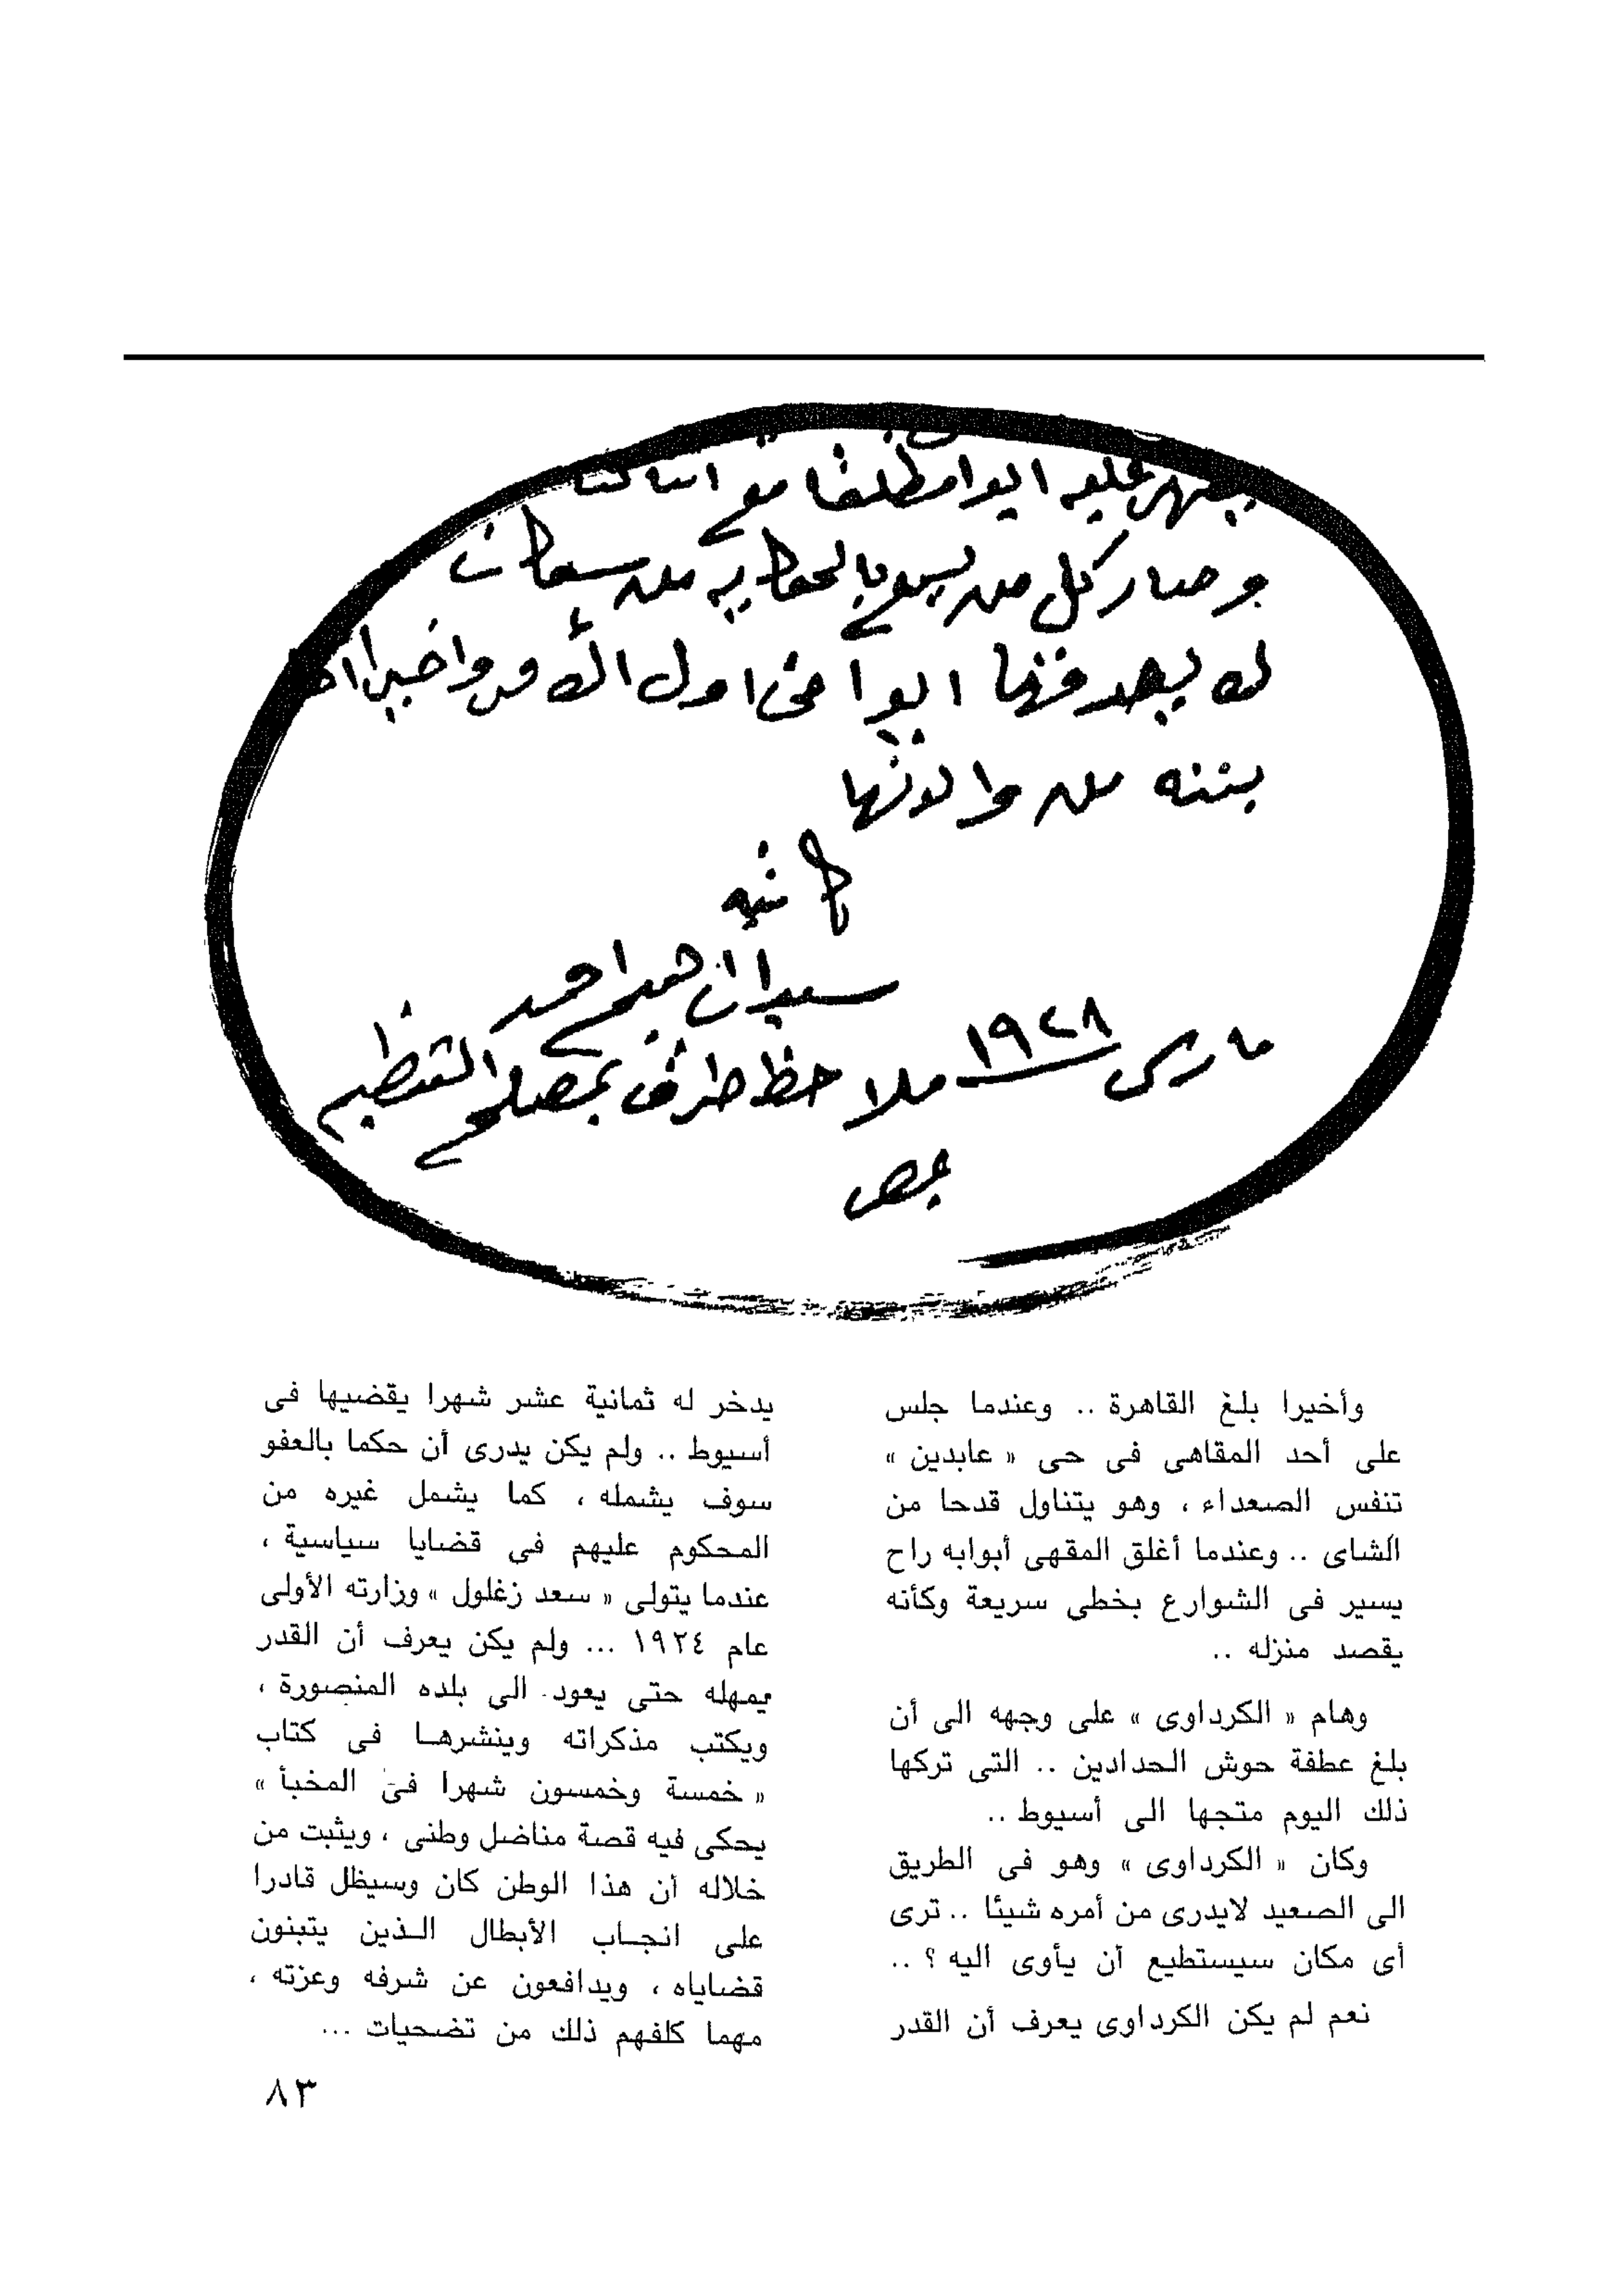 وصار كل من يسمع بالحكاية من
لم يصدقها ابدا
من والدتها
كاتبه
احمد
مارس ١٩٢٨ ملاحظ طرق بمصلحة التنظيم
بمصر
وأخيرا بلغ القاهرة .. وعندما جلس
على أحد المقاهى فى حى « عابدين »
تنفس الصعداء ، وهو يتناول قدحا من
الشاى .. وعندما أغلق المقهى أبوابه راح
يسير فى الشوارع بخطى سريعة وكأنه
يقصد منزله ..
وهام « الكرداوى » على وجهه الى أن
بلغ عطفة حوش الحدادين .. التى تركها
ذلك اليوم متجها الى أسيوط ..
وكان « الكرداوى » وهو فى الطريق
الى الصعيد لايدرى من أمره شيئا .. ترى
أى مكان سيستطيع أن يأوى اليه ؟ ..
نعم لم يكن الكرداوى يعرف أن القدر
يدخر له ثمانية عشر شهرا يقضيها فى
أسيوط .. ولم يكن يدرى أن حكما بالعفو
سوف يشمله ، كما يشمل غيره من
المحكوم عليهم فى قضايا سياسية ،
عندما يتولى « سعد زغلول » وزارته الأولى
عام ١٩٢٤ ... ولم يكن يعرف أن القدر
يمهله حتى يعود الى بلده المنصورة ،
ويكتب مذكراته وينشرهـا فى كتاب
« خمسة وخمسون شهرا فى المخبأ »
يحكى فيه قصة مناضل وطنى ، ويثبت من
خلاله أن هذا الوطن كان وسيظل قادرا
على انجـاب الأبطال الـذين يتبنون
قضاياه ، ويدافعون عن شرفه وعزته ،
مهما كلفهم ذلك من تضحيات ...
٨٣